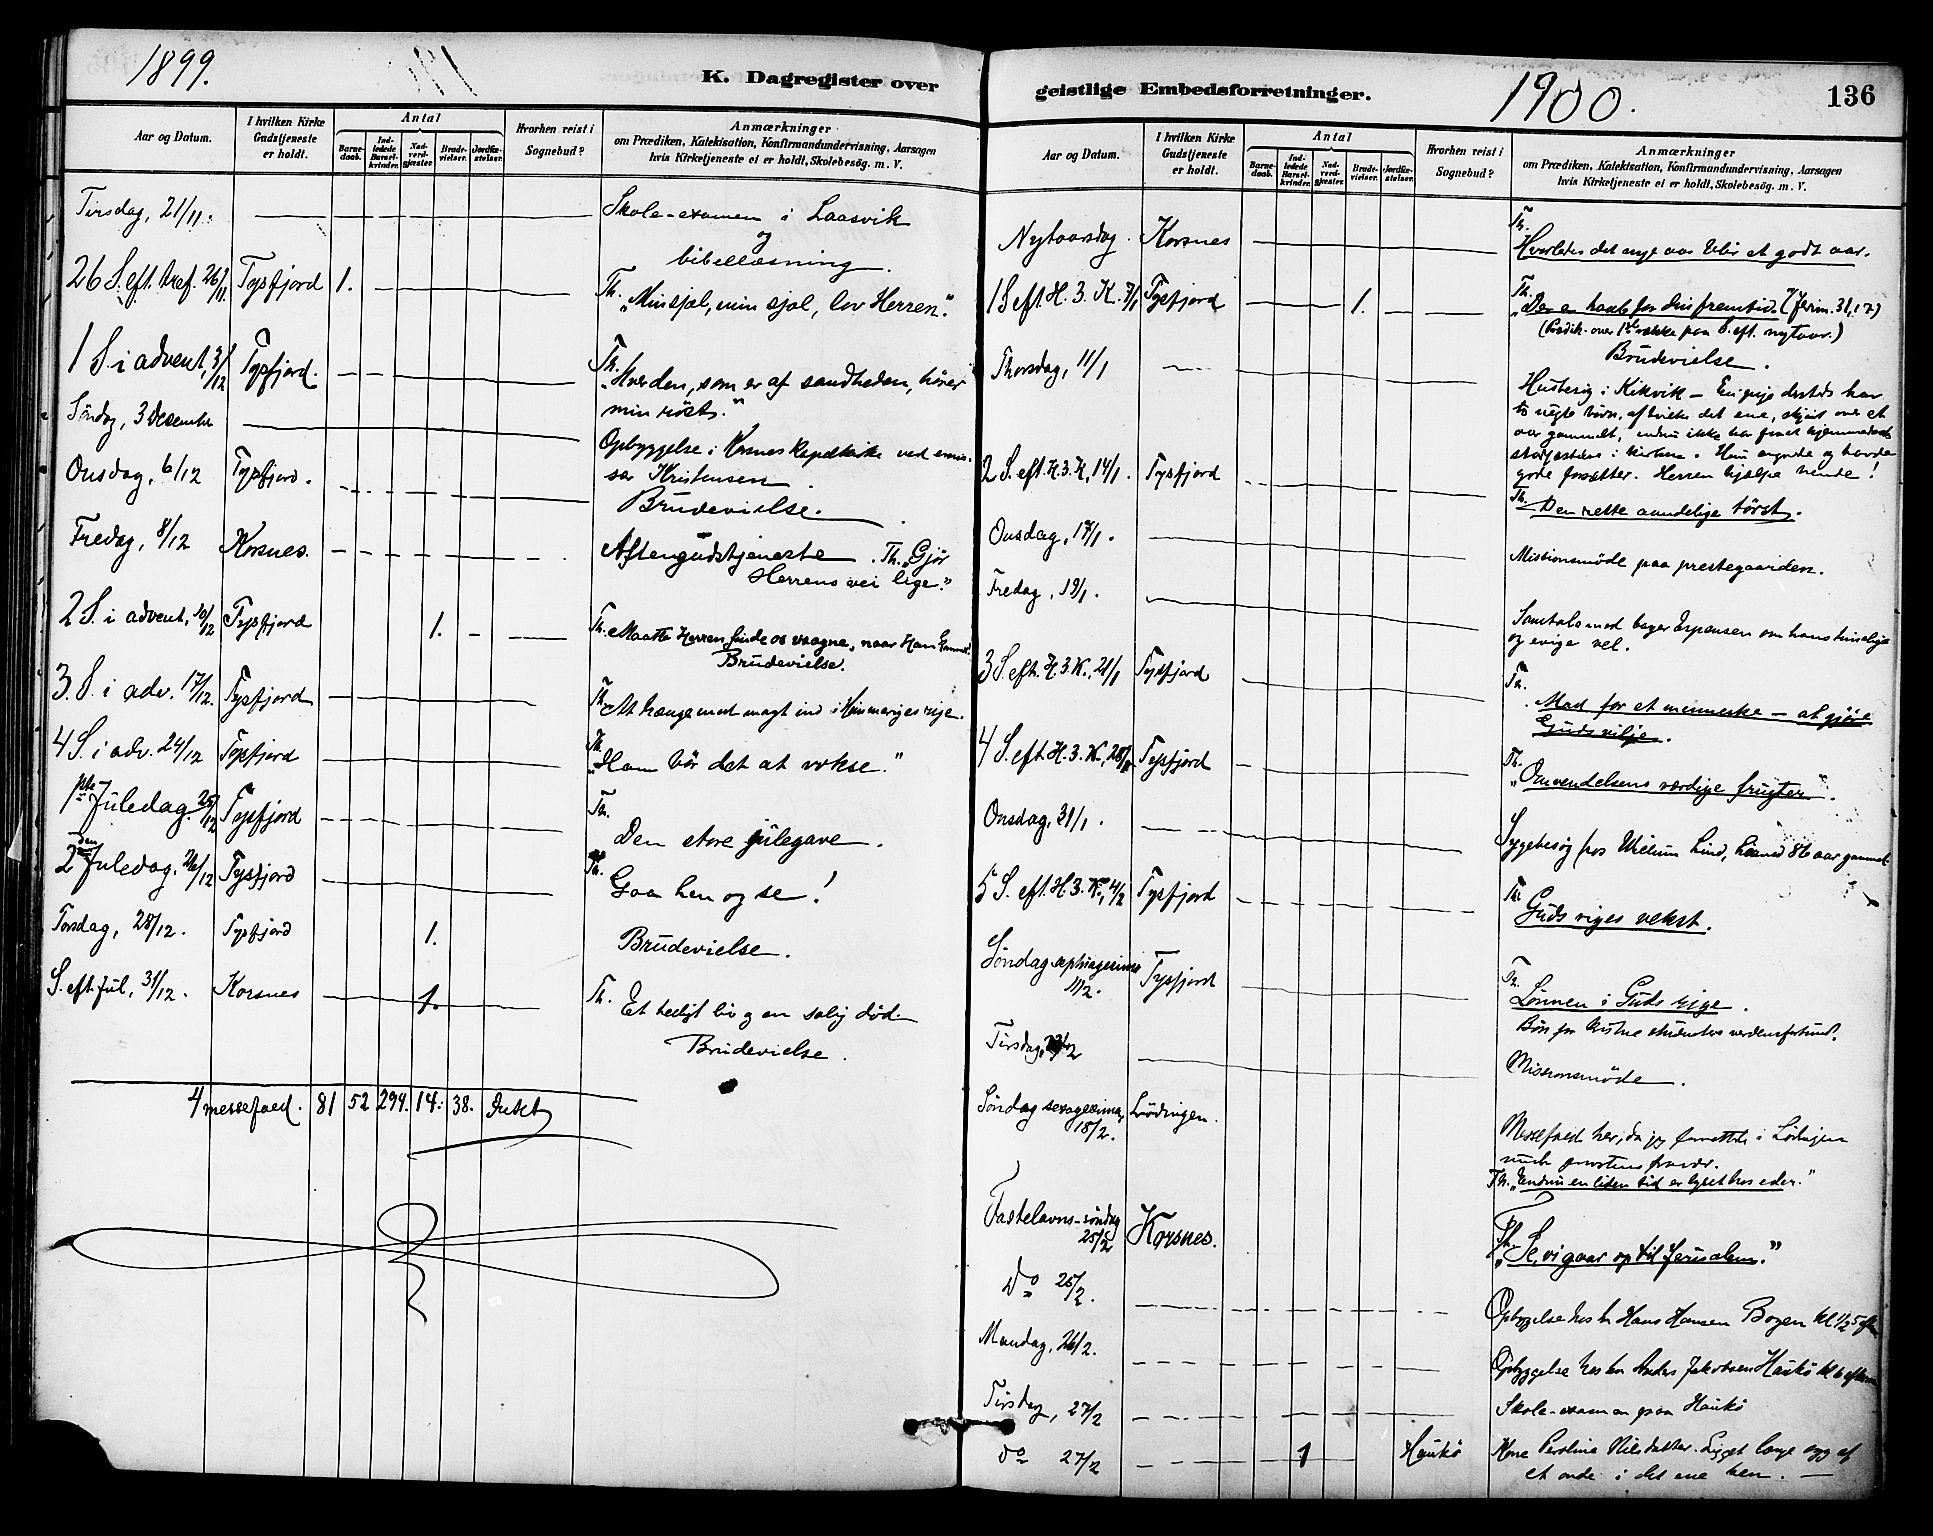 1899.
K. Dagregister over
Aar og Datum.
I hvilken Kirke Gudstjeneste er holdt.
Antal
Barnedaab.
Indledede Barselkvinder.
Nadverdgjæster.
Brudevielser.
Jordfæstelser.
Hvorhen reist i Sognebud?
Anmærkninger
om Prædiken, Katekisation, Konfirmandundervisning, Aarsagen
hvis Kirketjeneste ei er holdt, Skolebesøg. m. V.
Tirsdag, 21/11. Skole-examen i Laasvik
og
bibellæsning.
26 S. eft. tref. 26/11. Tysfjord 1. Th. "Min sjæl, min sjæl, lov Herren".
1 S. i advent, 3/12 Tysfjord. Th. "Hver den, som er af sandheden, hører
min röst."
Söndag, 3 Desember Opbyggelse i Korsnes kapelkirke ved emis-
sær Kristensen.
Onsdag, 6/12 Tysfjord. Brudevielse.
Fredag, 8/12 Korsnes. Aftengudstjeneste. Th. "Gjör
Herrens vei lige."
2 S. i advent, 10/12 Tysfjord 1. Th. Maatte Herren finde os vaagne, naar Han kommer!
Brudevielse.
3. S. i adv. 17/12. Tysfjord Th. At trænge med magt ind i Himmeriges rige.
4 S. i adv. 24/12 Tysfjord Th. "Ham bör det at vokse."
1ste Juledag 25/12 Tysfjord Th.
Den store julegave.
2den Juledag, 26/12 Tysfjord Th.
Gaa hen og se!
Torsdag, 28/12. Tysfjord 1. Brudevielse.
S. eft. jul, 31/12. Korsnes 1. Th. Et heiligt liv og en salig död.
Brudevielse.
4 messefald. 81 52 294. 14. 38.
geistlige Embedsforretninger.
1900.
136
Aar og Datum.
I hvilken Kirke Gudstjeneste er holdt.
Antal
Barnedaab.
Indledede Barselkvinder.
Nadverdgjæster.
Brudevielser.
Jordfæstelser.
Hvorhen reist i Sognebud?
Anmærkninger
om Prædiken, Katekisation, Konfirmandundervisning, Aarsagen
hvis Kirketjeneste ei er holdt, Skolebesög. m. V.
Nytaarsdag. Korsnes Th.
Hvorledes det nye aar blir et godt aar.
1 S. eft H. 3. K. 7/1 Tysfjord 1. Th.
"Der er haab for din fremtid." (Jerem. 31,17)
(Prædik. over 1ste række paa S. eft. nytaar.)
Brudevielse.
Thorsdag, 11/1 Husbesög i Kikvik – En pige dersteds har
to uægte börn, af hvilke det ene, skjönt over et
aar gammelt, endnu ikke har faaet hjemmedaab
stadfæstelse i kirken. Hun angrede og havde
gode forsætter. Herren hjælpe hende!
2 S. eft. H. 3. K, 14/1. Tysfjord Th.
Den rette aandelige törst.
Onsdag, 17/1. Missionsmöde paa prestegaarden.
Fredag, 19/1. Samtale med bager Espensen om hans timelige
og evige vel.
3 S. eft. H. 3 K., 21/1 Tysfjord Th.
Mad for et menneske – at gjöre
Guds vilje.
4 S. eft. H. 3. K., 28/1 Tysfjord Th.
"Omvendelsens værdige frugter".
Onsdag, 31/1. Sygebesög hos Lind, 86 aar gammel
5 S. eft. H. 3. K., 4/2 Tysfjord Th.
Guds riges vekst.
Söndag septuagesima 11/2. Tysfjord Th.
Lönnen i Guds rige.
Bön for kristne studenters verdensforbund.
Tirsdag, Missionsmöde.
Söndag sexagesima, 18/2. Lödingen. Messefald her, da jeg forrettede i Lödingen
under provstens fravær.
Th. "Endnu en liden tid er lyset hos eder."
Fastelavns-söndag 25/2 Korsnes. Th.
"Se, vi gaar op til Jerusalem."
Do 25/2. Opbyggelse hos Hans Hansen Bogen kl 1/2 5 eftm
Mandag, 26/2. Opbyggelse hos Anders Jakobsen Haukö kl 6 eftm
Tirsdag, 27/2 Skole-examen paa Haukö
do 27/2 1 Haukö Kone Perolina Nilsdatter. Ligget længe syg af
et onde i det ene ben. –